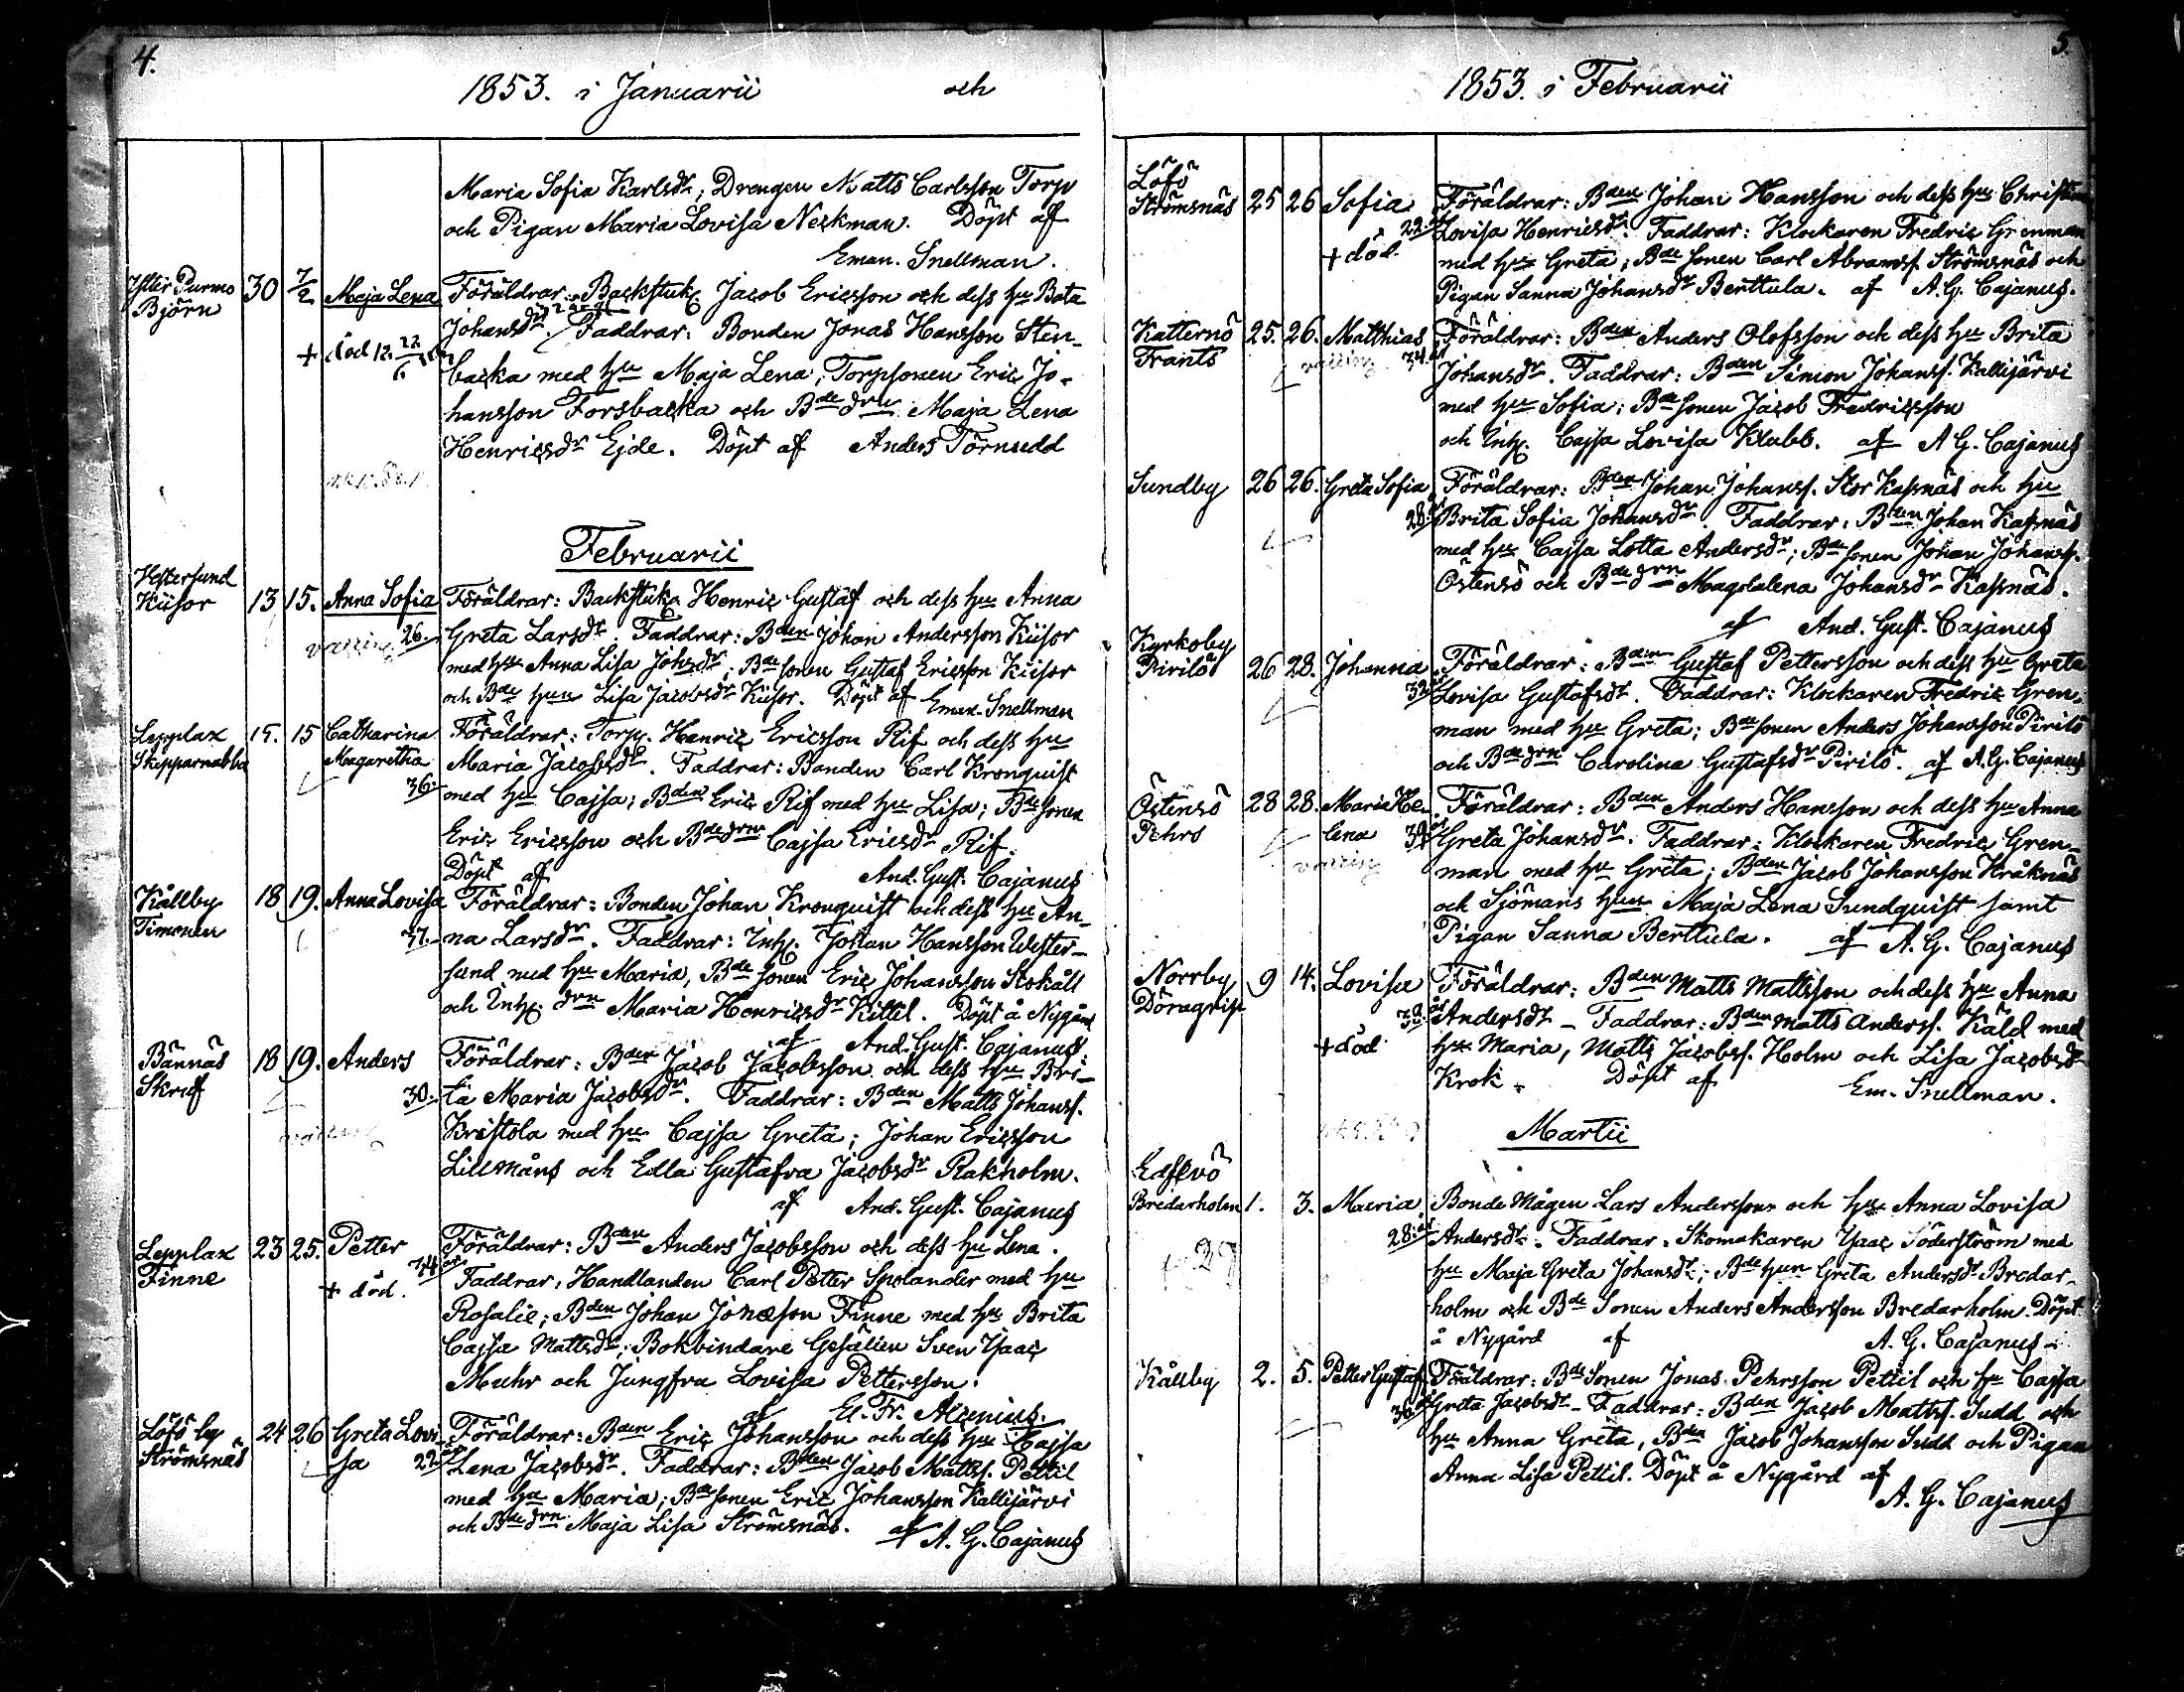 4.
1853. i Januarii och
Maria Sofia Karlsdr; Drengen Matts Carlsson Torp
och Pigan Maria Lovisa Neckman. Döpt aff
Eman. Snellman.
Ytter Purmo 30 7/2 Maja Lena Föräldrar: Backstuk. Jacob Ericsson och dess hu Bata
Björn Johansdr. Faddrar: Bonden Jonas Hansson Sten-
+ död 12. 22/6 backa med hu Maja Lena; Torpsonen Eric Jo-
hansson Forsbacka och Bdedrn Maja Lena
Henricsdr Ejde. Döpt af Anders Törnudd
Februarii
Vestersund
Kiisor 13 15. Anna Sofia Föräldrar: Backstuk. Henric Gustaf och dess hu Anna
26. Greta Larsdr. Faddrar: Bden Johan Andersson Kiisor
med hu Anna Lisa Johsdr; Bdesonen Gustaf Ericsson Kiisor
och Bde hun Lisa Jacobsdr Kiisor. Döpt af Eman. Snellman
Lepplax 15. 15 Catharina Föräldrar: Torp. Henric Ericsson Rif och dess hu
Skepparnabba Magaretha Maria Jacobsdr. Faddrar: Bonden Carl Kronquist
36. med hu Cajsa; Bden Eric Rif med hu Lisa; Bdesonen
Eric Ericsson och Bdedrn Cajsa Ericsdr Rif.
Döpt af And. Gust. Cajanus
Kållby 18 19. Anna Lovisa Föräldrar: Bonden Johan Kronquist och dess hu An-
Timonen 37. na Larsdr. Faddrar: Inh. Johan Hansson Wester-
sund med hu Maria, Bdesonen Eric Johansson Stokåll
och Inh. drn Maria Henricsdr Kittil. Döpt å Nygård
af And. Gust. Cajanus.
Bännäs 18 19. Anders Föräldrar: Bden Jacob Jacobsson och dess hu Bri-
Skruf 30. ta Maria Jacobsdr. Faddrar: Bden Matts Johanss.
Kristola med hu Cajsa Greta; Johan Ericsson
Lillmåns och Edla Gustafva Jacobsdr Rakholm.
af And. Gust. Cajanus
Lepplax 23 25. Petter Föräldrar: Bden Anders Jacobsson och dess hu Lena.
Finne + död. Faddrar: Handlanden Carl Petter Spolander med hu
Rosalie; Bden Johan Jonasson Finne med hu Brita
Cajsa Mattsdr; Bokbindare Gesällen Sven Ysaac
Muhr och Jungfru Lovisa Pettersson.
af El. Fr. Alcenius.
Löfö by 24 26 Greta Lovi- Föräldrar: Bden Eric Johansson och dess hu Cajsa
Strömsnäs sa 22 Lena Jacobsdr. Faddrar: Bden Jacob Mattss. Pettil
med hu Maria; Bdesonen Eric Johansson Kallijärvi
och Bdedrn Maja Lisa Strömsnäs. af A. G. Cajanus
5.
1853. i Februarii
Löfö
Strömsnäs 25 26 Sofia Föräldrar: Bden Johan Hansson och dess hu Christina
22. Lovisa Henricsdr. Faddrar: Klockaren Fredric Grenman
+ död. med hu Greta; Bdesonen Carl Abramss. Strömsnäs och
Pigan Sanna Johansdr Berttula. af A. G. Cajanus.
Katternö 25. 26. Matthias Föräldrar: Bden Anders Olofsson och dess hu Brita
Frants 34. Johansdr. Faddrar: Bden Simon Johanss. Kallijärvi
med hu Sofia; Bdesonen Jacob Fredricsson
och Inh. Cajsa Lovisa Klubb. af A G. Cajanus
Sundby 26 26. Greta Sofia Föräldrar: Bden Johan Johanss. Stor Kassnäs och hu
28. Brita Sofia Johansdr. Faddrar: Bden Johan Kassnäs
med hu Cajsa Lotta Andersdr; Bdesonen Johan Johanss.
Östensö och Bdedrn Magdalena Johansdr Kassnäs.
af And. Gust. Cajanus
Kyrkoby
Pirilö 26 28. Johanna Föräldrar: Bden Gustaf Pettersson och dess hu Greta
32 Lovisa Gustafsdr. Faddrar: Klockaren Fredric Gren-
man med hu Greta; Bdesonen Anders Johansson Pirilö
och Bdedrn Carolina Gustafsdr Pirilö. af A. G. Cajanus
Östensö 28 28. Maria He- Föräldrar: Bden Anders Hansson och dess hu Anna
Pehrs lena Greta Johansdr. Faddrar: Klockaren Fredric Gren-
man med hu Greta; Bden Jacob Johansson Kråknäs
och Sjömans hun Maja Lena Sundquist samt
Pigan Sanna Berttula. af A. G. Cajanus
Norrby 9 14. Lovisa Föräldrar: Bden Matts Mattsson och dess hu Anna
Döragrip 32. Andersdr - Faddrar: Bden Matts Anderss. Käld med
+ död hu Maria, Matts Jacobss. Holm och Lisa Jacobsdr
Krok. Döpt af Em. Snellman.
Martii
Edsevö
Bredarholm 1. 3. Maria Bonde Mågen Lars Andersson och hu Anna Lovisa
28. Andersdr. Faddrar: Skomakaren Ysaac Söderström med
hu Maja Greta Johansdr; Bde hun Greta Andersdr Bredar-
holm och Bde Sonen Anders Andersson Bredarholm. Döpt
å Nygård af A. G. Cajanus
Kållby 2. 5. Petter Gustaf Föräldrar: Bde Sonen Jonas Pehrsson Pettil och hu Cajsa
36 Greta Jacobsdr - Faddrar: Bden Jacob Mattss. Sudd och
hu Anna Greta, Bden Jacob Johansson Sudd och Pigan
Anna Lisa Pettil. Döpt å Nygård af
A. G. Cajanus